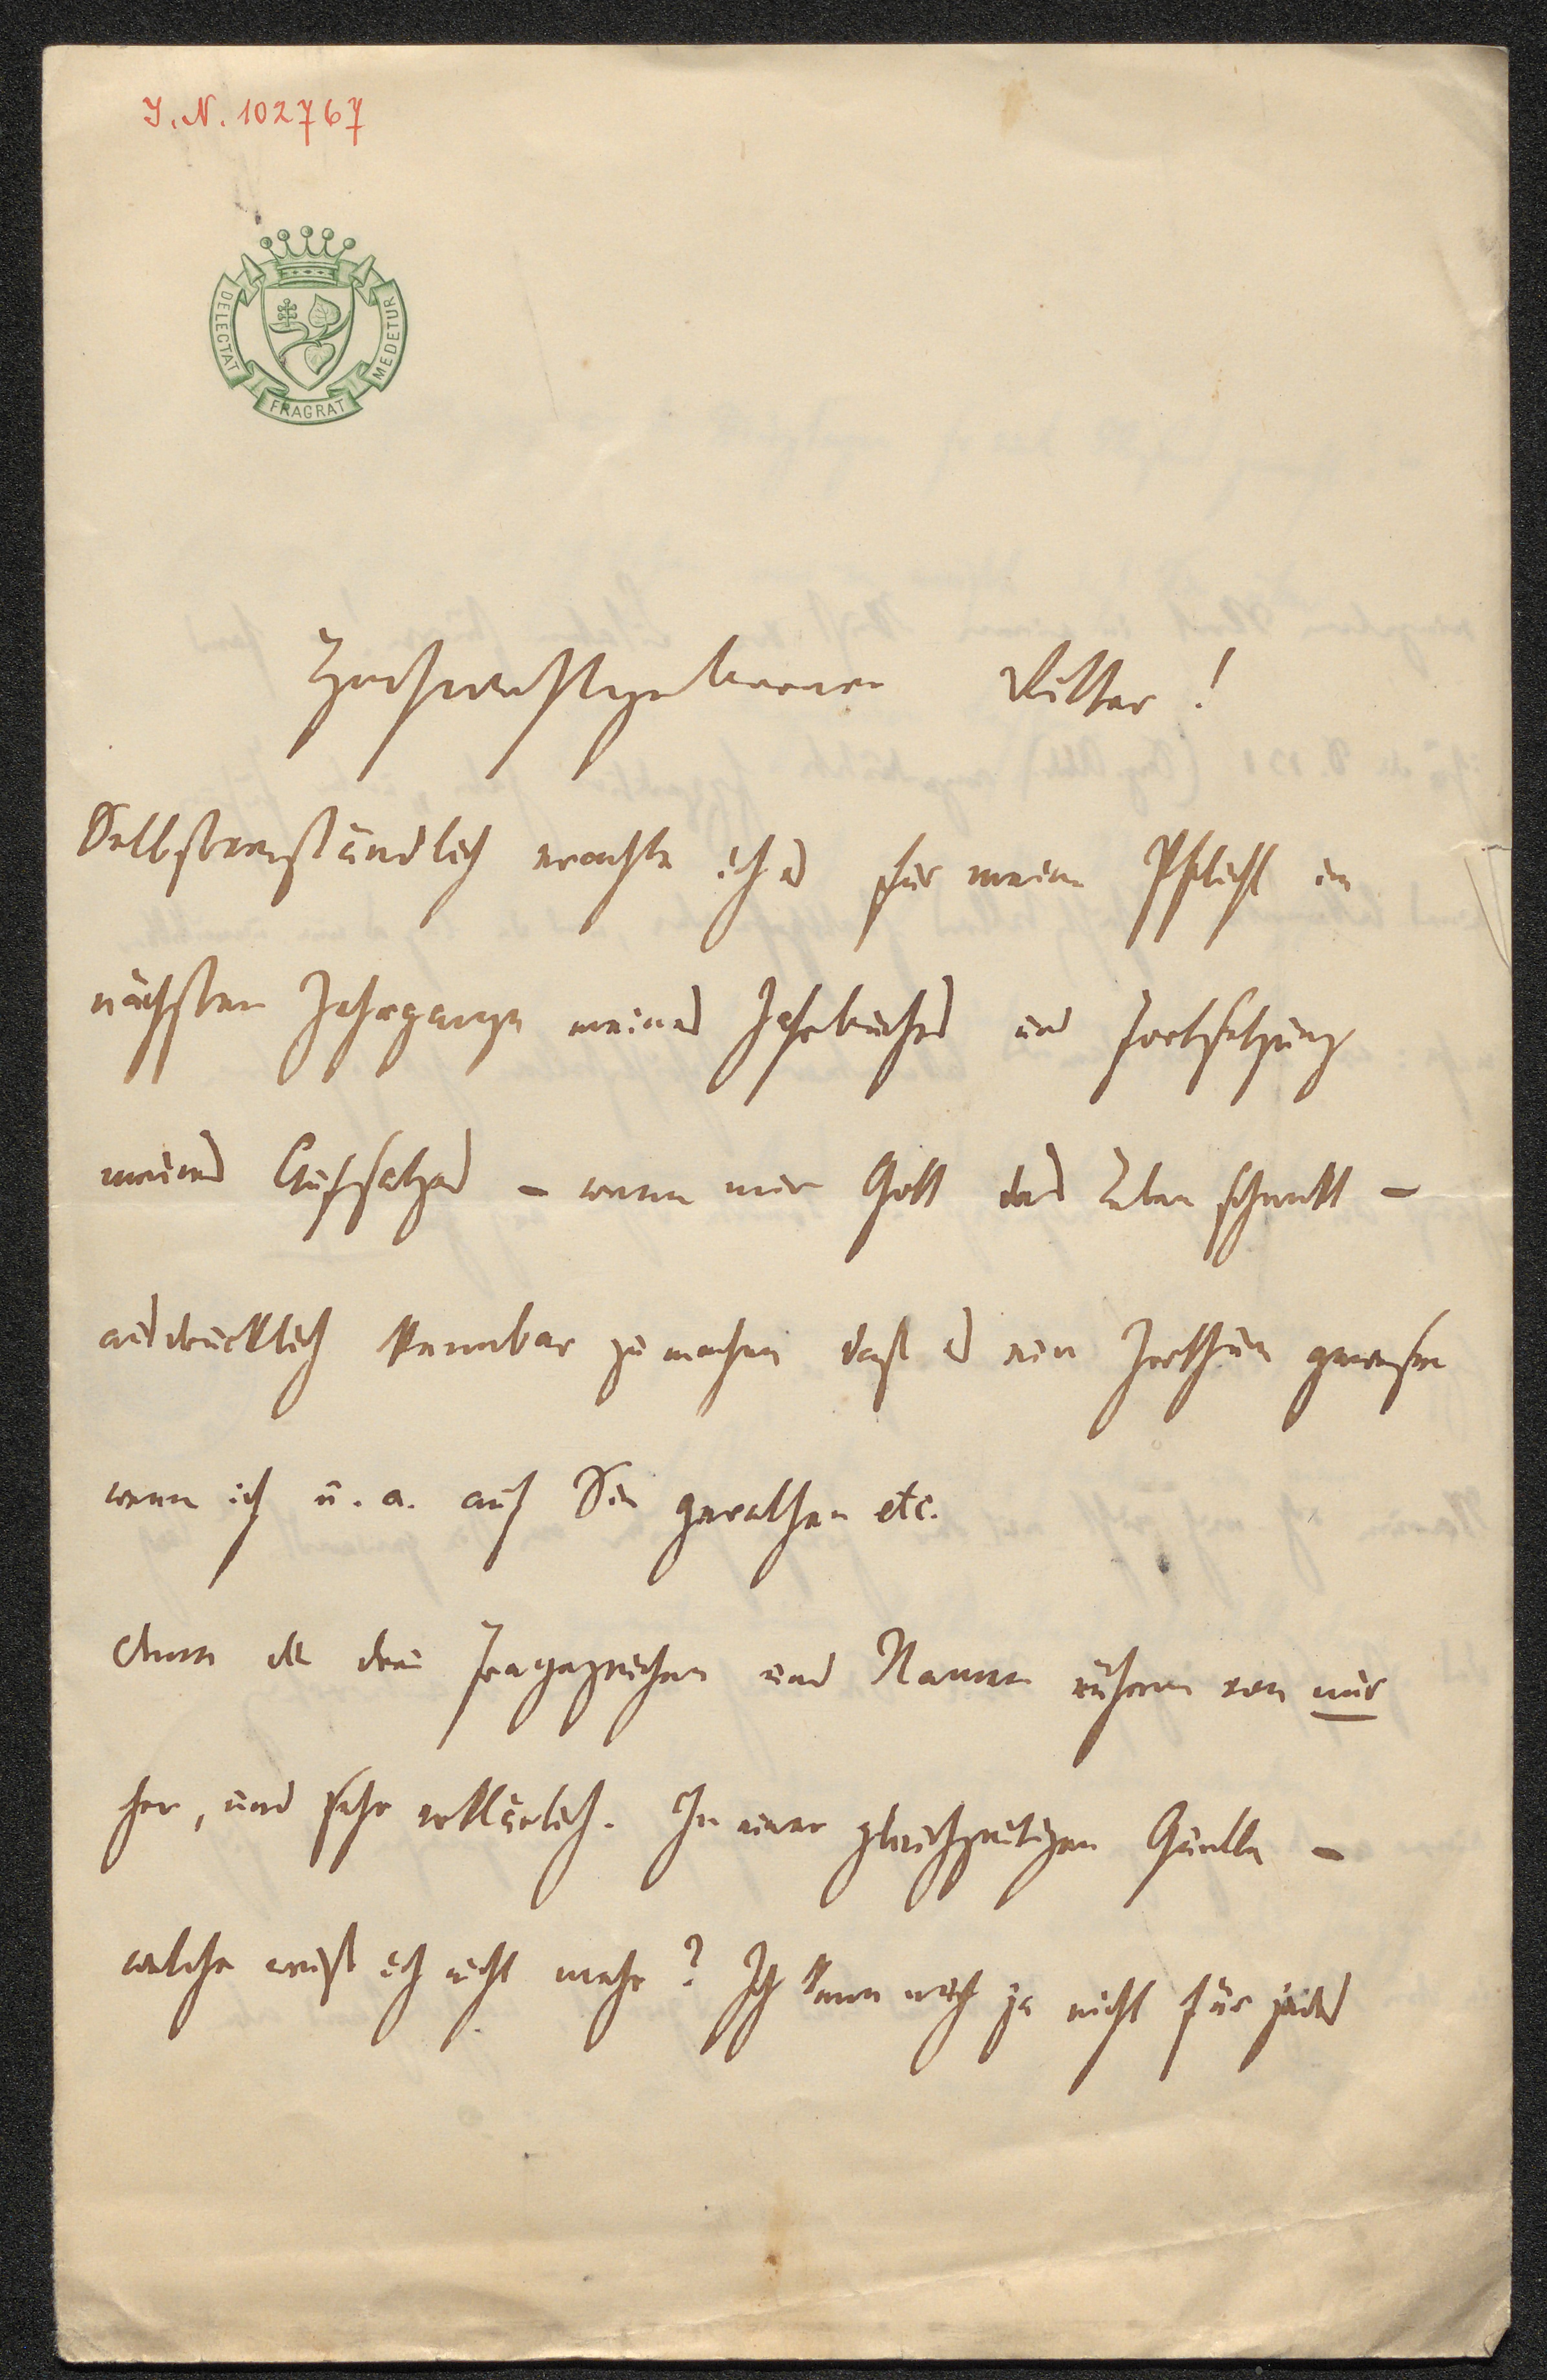 I. N. 102767
DELECTAT FRAGRAT MEDETUR
Hochwohlgeborener Ritter!
Selbstverständlich erachte ich es für meine Pflicht im
nächsten Jahrgange meines Jahrbuches und Fortsetzung
meines Aufsatzes – wenn mir Gott das Leben schenkt –
ausdrücklich kennbar zu machen daß es ein Irrthum gewesen
wenn ich u. a. auf Sie gerathen etc.
Denn die drei Fragezeichen und Namen rühren von mir
her, und sehr erklärlich. In einer gleichzeitigen Quelle –
welche weiß ich nicht mehr? Ich kann mich ja nicht für jedes